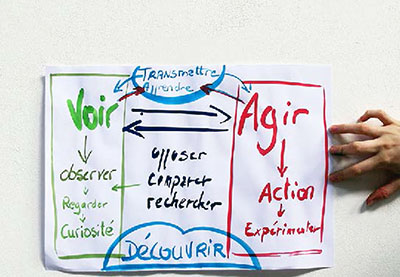 TRANSMETTRE
Apprendre
Voir
Agir
observer
Regarder
Curiosité
opposer
comparer
rechercher
Action
Expérimenter
DÉCOUVRIR